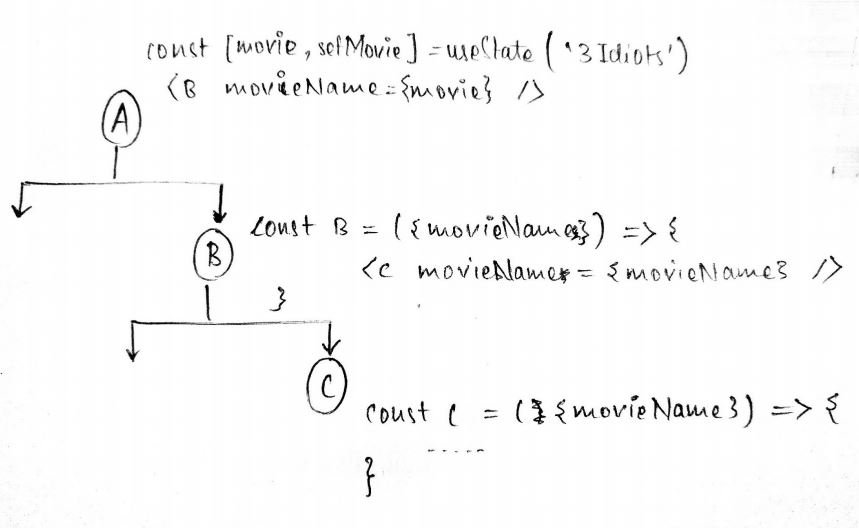 const [movie, setMovie] = useState ('3 Idiots')
<B movieName={movie} />
A
const B = ({movieName}) => {
B
<C movieName = {movieName} />
}
C
const C = ({movieName}) => {
-----
}